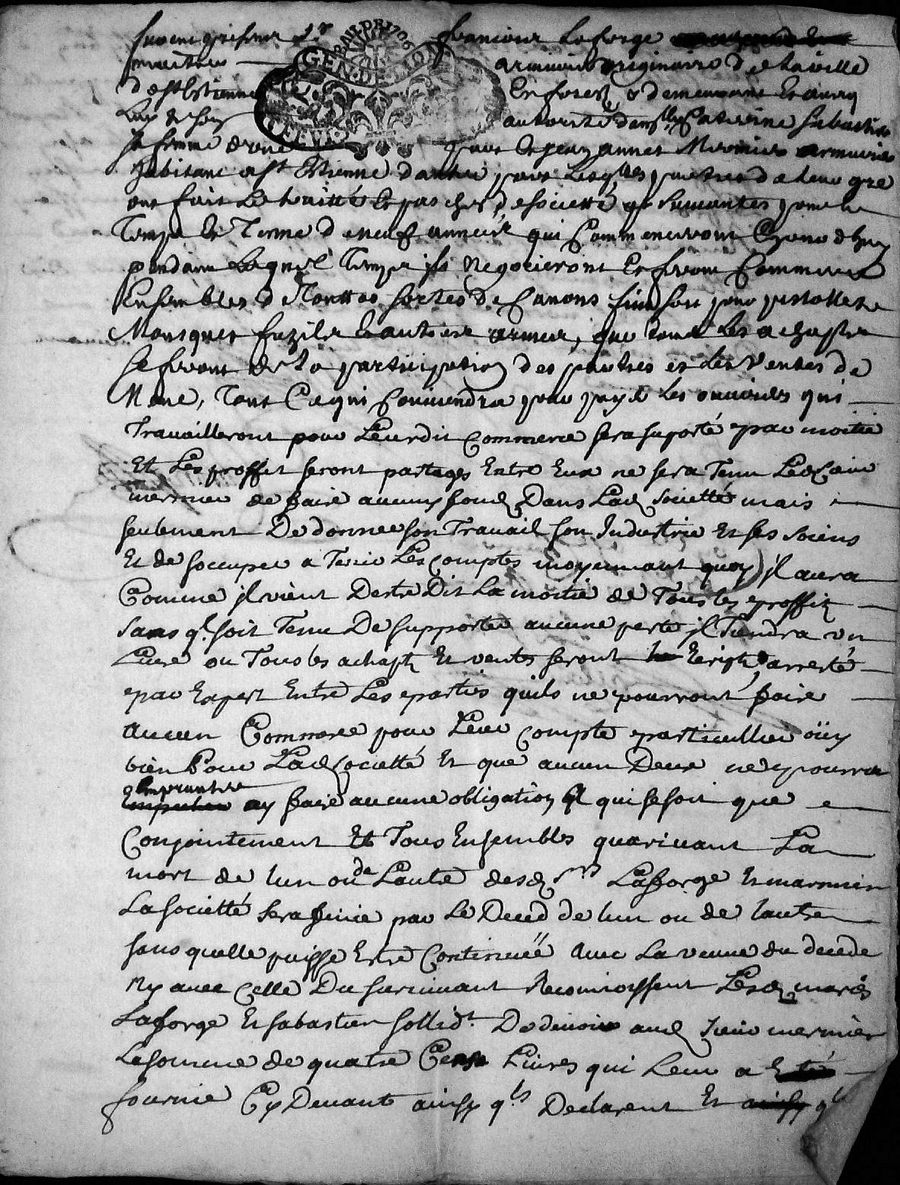 furent presents Sr François Laforge
BAIL DE 1706
GEN. DE LION
armurier originaire de la ville
de St Estienne En forest & demeurant
Luy de son autorité dansle Caterine Sabastien
sa femme d'une part Et Jean Mermier armurier
habitant a St Etienne d'autre part Lesqlles parties de leur gré
ont fait Le traitté Et pasches de societté qs suivantes pour le
Temps Et Terme de neuf années qui Commenceront
pendant Lequel Temps ils negocieront Et feront Commerce
Ensembles de Touttes sortes de Canons fusils pour pistollets
Mousquet fuzils Et autres armes, que tous Les achapts
se feront de la participation des parties et Les Ventes de
Mesme, Tout Ce qui Conviendra pour payé Les ouvriers qui
Travailleront pour Leurdit Commerce sera suporté par moitié
Et Les proffit seront partagés Entre Eux ne sera Tenu Led
mermier de faire aucuns fond Dans Lad societté mais
seulement De donner son Travail son Industrie Et ses soiens
Et de soccuper a Tenir Les Comptes moyennant quoy jl aura
Comme jl vient Destre Dit La moitié de Tous les proffit
sans ql soit Tenu De supporter aucune perte jl Tiendra un
Livre ou Tous les achapt Et vente seront Ecript & arresté
par Entre Les parties quils ne pourront faire
aucun Commerce pour Leur Compte particullier
bien Pour Lad societté Et que aucun Deux ne pourra
Emprunter ny faire aucune obligation ql qui se soit que
Conjointement Et Tous Ensembles quarivant La
mort de lun ou de Lautre desd Srs Lafforge Et mermier
La societté sera finie par Le Deced de lun ou de lautre
sans quelle puisse Estre Continuée avec La veuve du decedé
Ny avec Celle Du survivant Reconnoissent Lesd mariés
Lafforge Et sabastien sollidt De devoir aud mermier
La somme de quatre Cens Livres qui Leur a Esté
fournie Cy Devant ainsy qls Declarent Et qls